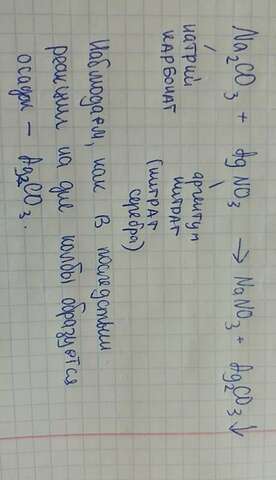 Na₂CO₃ + AgNO₃ → NaNO₃ + Ag₂CO₃↓
натрий
карбонат
аргентум
нитрат
(нитрат
серебра)
Наблюдаем, как в последствии
реакции на дне колбы образуется
осадок – Ag₂CO₃.